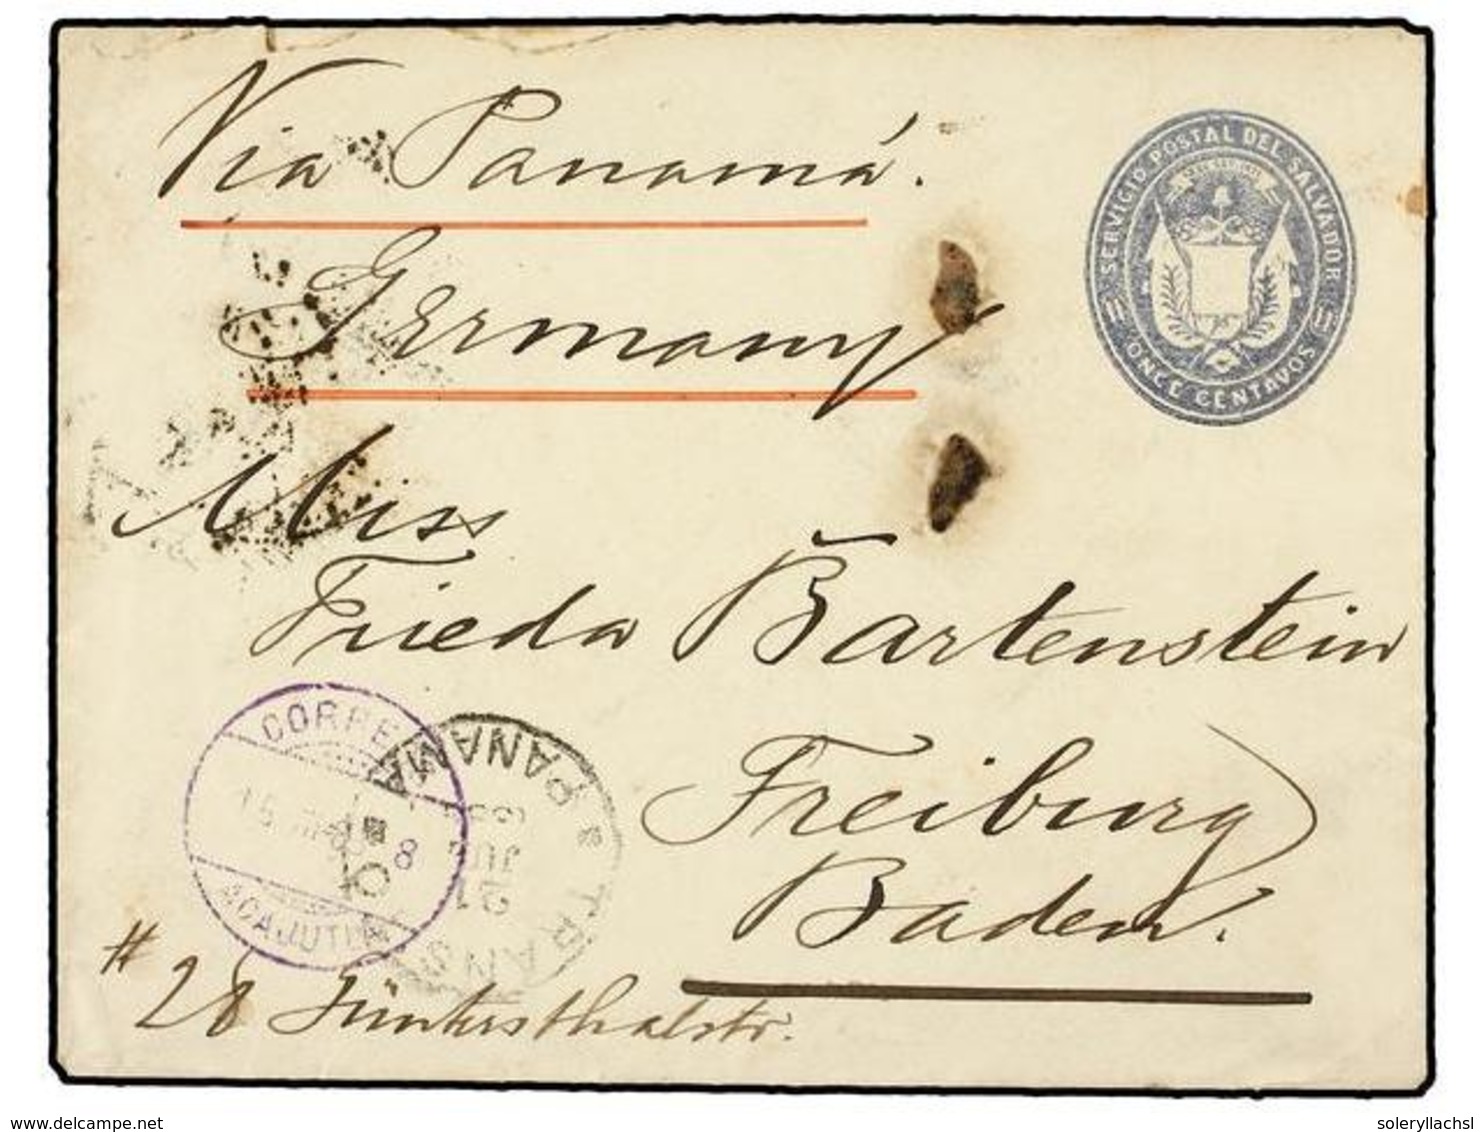 Via Panamá.
SERVICIO POSTAL DEL SALVADOR
ONCE CENTAVOS
11 11
Germany
Miss
Frieda Bartenstein
Freiburg
Baden.
CORREOS
8
ACAJUTLA
PANAMA
JUL
21
TRANSIT
# 28 Günthersthalstr.
soleryllachsl